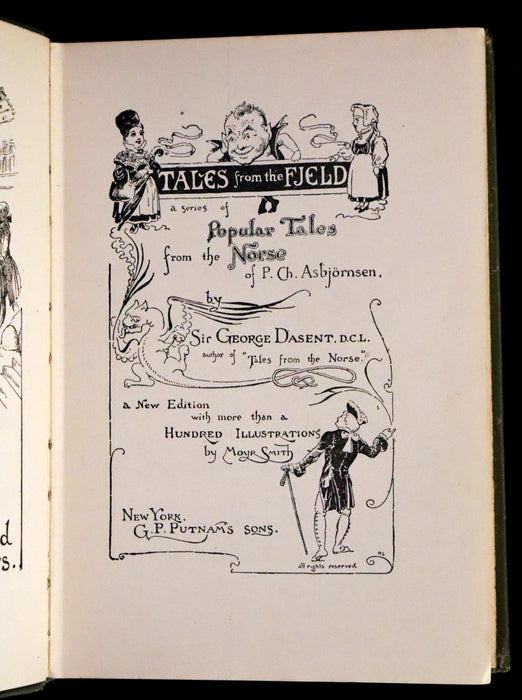 TALES from the FJELD
a series of
Popular Tales
from the Norse
of P. Ch. Asbjörnsen,
by
Sir GEORGE DASENT, D.C.L.
author of "Tales from the Norse."
a New Edition
with more than a
HUNDRED ILLUSTRATIONS
by Moyr Smith
NEW YORK.
G. P. PUTNAM'S SONS.
all rights reserved
d
s.